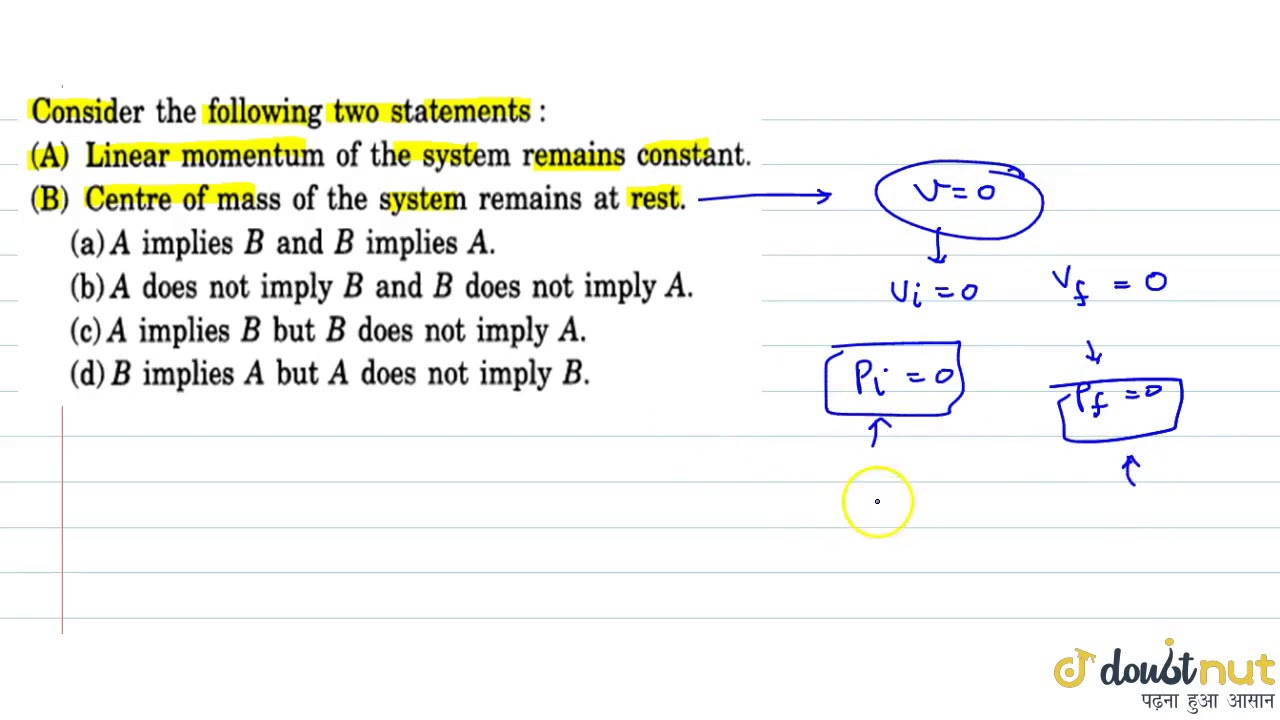 Consider the following two statements :
(A) Linear momentum of the system remains constant.
(B) Centre of mass of the system remains at rest.
(a) A implies B and B implies A.
(b) A does not imply B and B does not imply A.
(c) A implies B but B does not imply A.
(d) B implies A but A does not imply B.
v = 0
vi = 0
Vf = 0
Pi = 0
Pf = 0
doubtnut
पढ़ना हुआ आसान